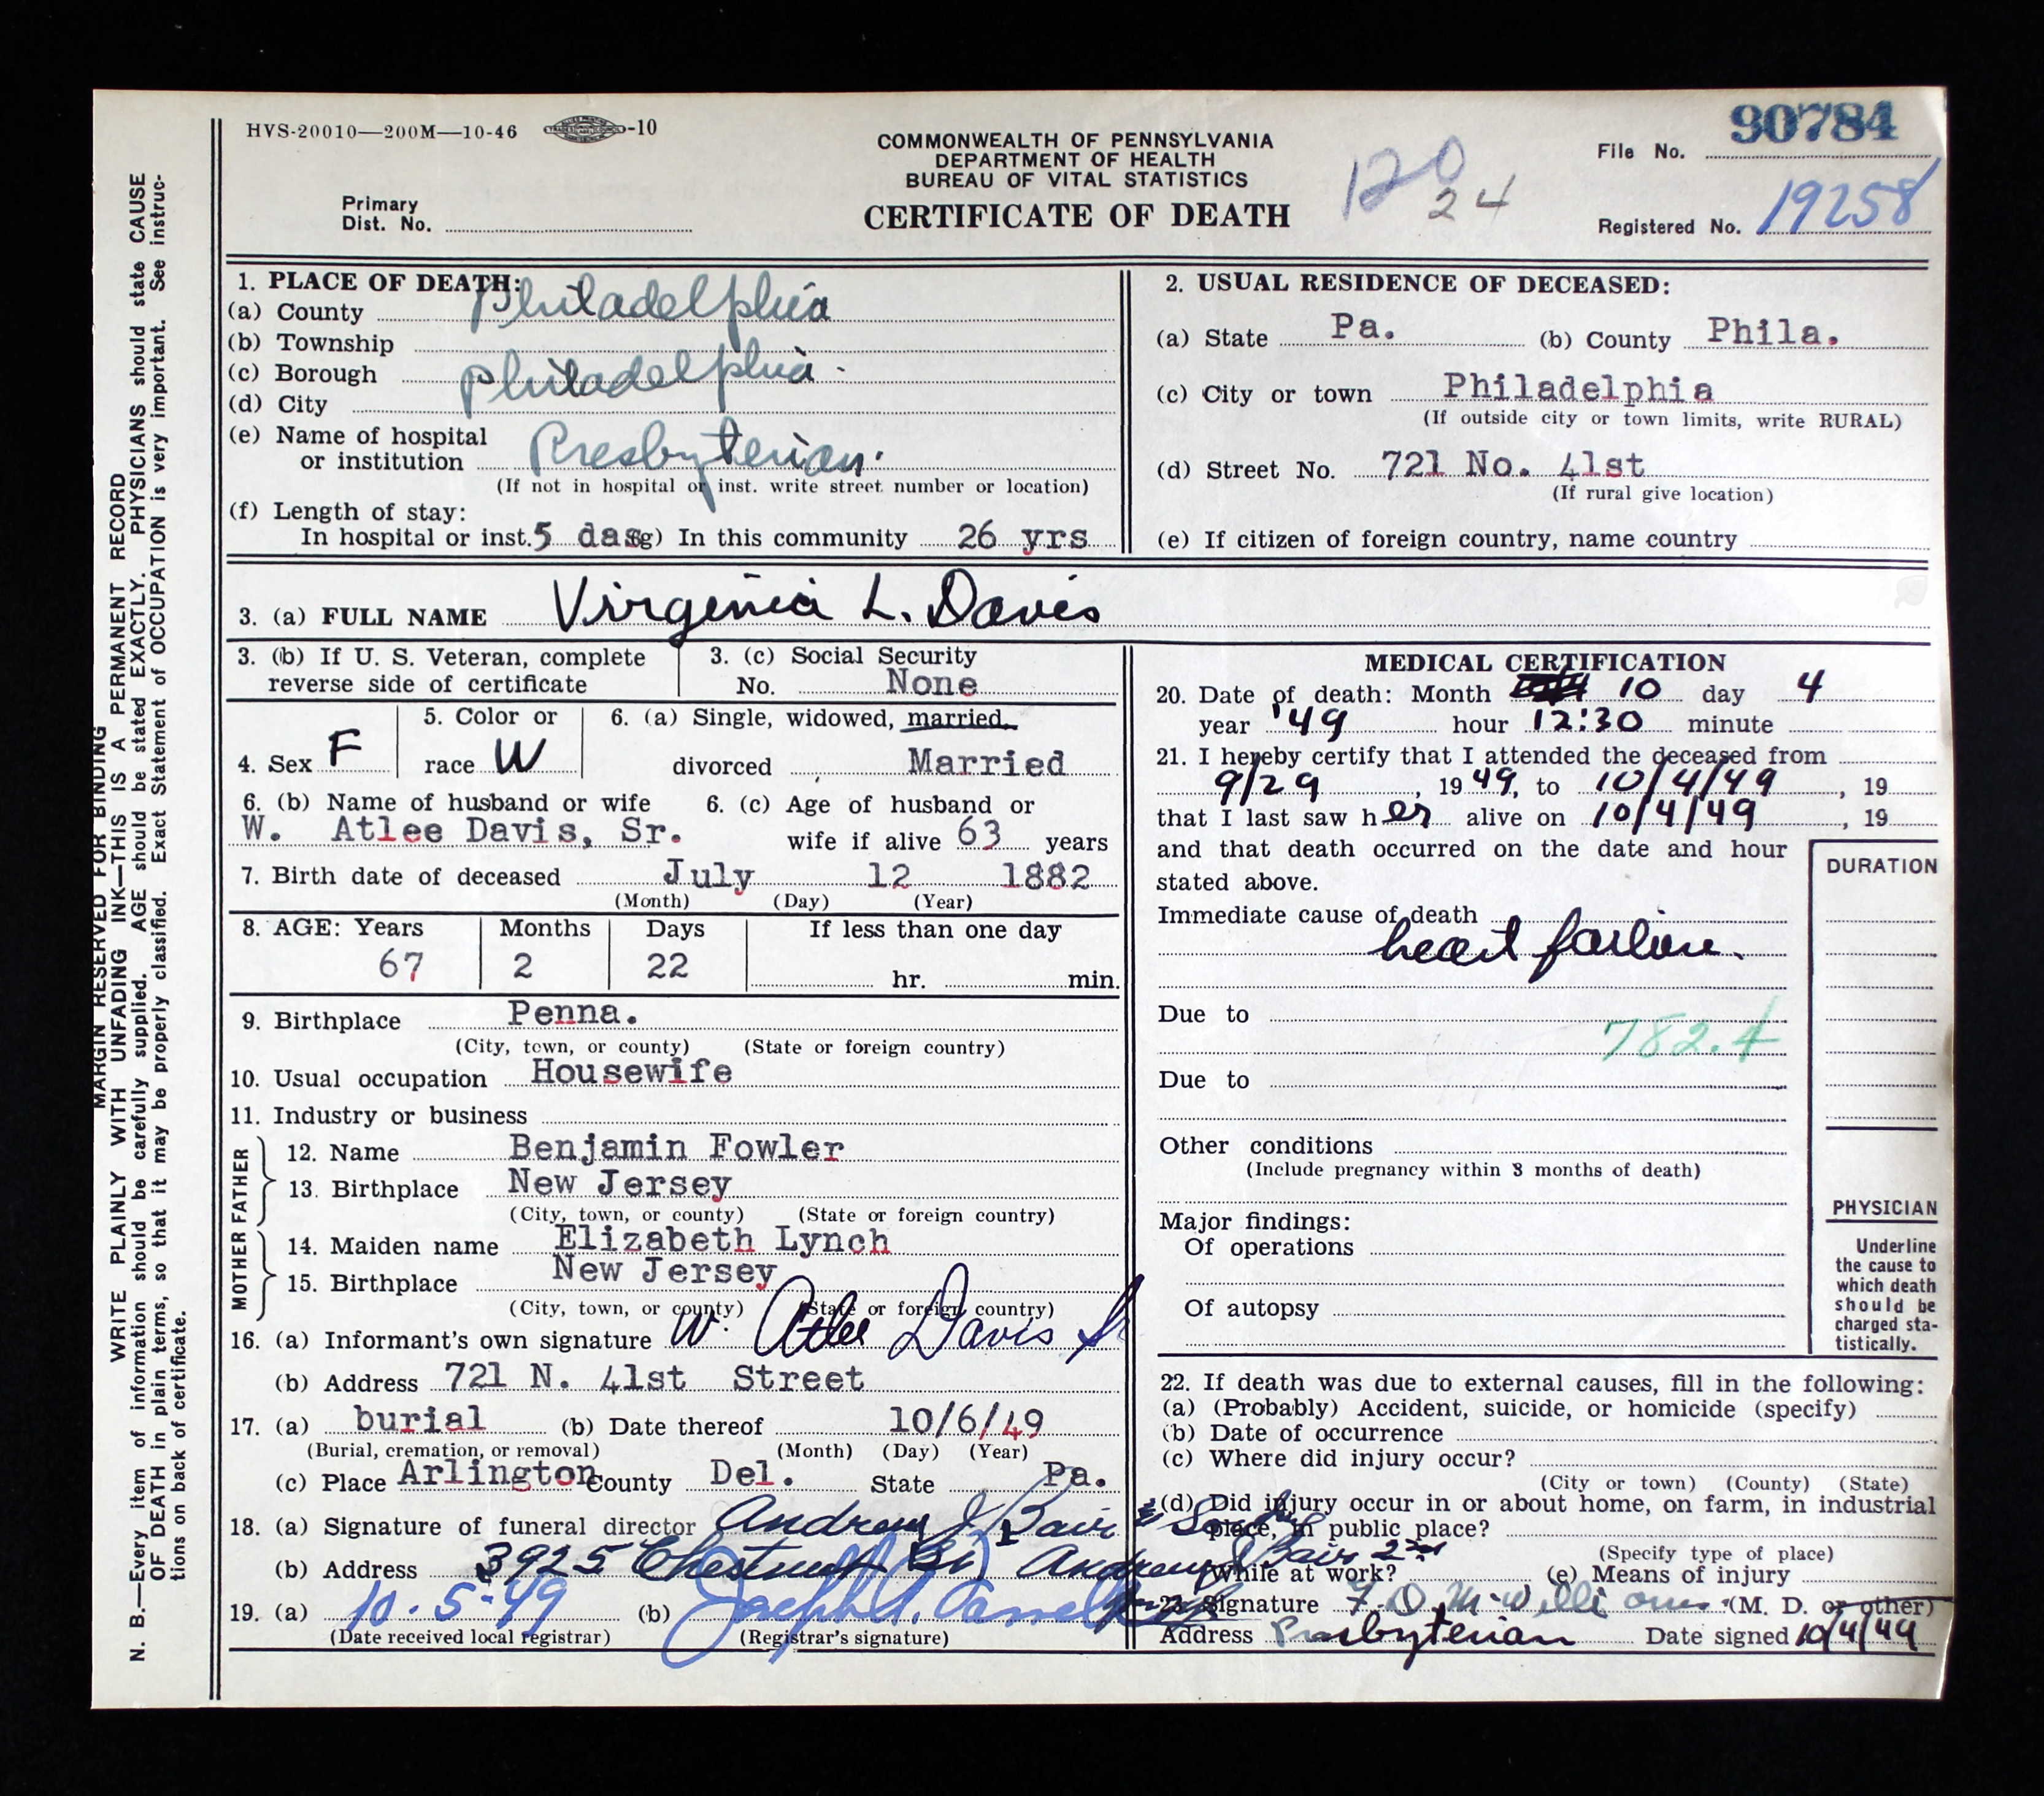 HVS-20010—200M—10-46 -10
COMMONWEALTH OF PENNSYLVANIA
DEPARTMENT OF HEALTH
BUREAU OF VITAL STATISTICS
CERTIFICATE OF DEATH
120
24
File No. 90784
Registered No. 19258
Primary
Dist. No.
MARGIN RESERVED FOR BINDING
WRITE PLAINLY WITH UNFADING INK—THIS IS A PERMANENT RECORD
N. B.—Every item of information should be carefully supplied. AGE should be stated EXACTLY. PHYSICIANS should state CAUSE
OF DEATH in plain terms, so that it may be properly classified. Exact Statement of OCCUPATION is very important. See instruc-
tions on back of certificate.
1. PLACE OF DEATH:
(a) County Philadelphia
(b) Township
(c) Borough Philadelphia
(d) City
(e) Name of hospital
or institution Presbyterian.
(If not in hospital or inst. write street number or location)
(f) Length of stay:
In hospital or inst. 5 das (g) In this community 26 yrs
2. USUAL RESIDENCE OF DECEASED:
(a) State Pa. (b) County Phila.
(c) City or town Philadelphia
(If outside city or town limits, write RURAL)
(d) Street No. 721 No. 41st
(If rural give location)
(e) If citizen of foreign country, name country
3. (a) FULL NAME Virginia L. Davis
3. (b) If U. S. Veteran, complete
reverse side of certificate
3. (c) Social Security
No. None
4. Sex F
5. Color or
race W
6. (a) Single, widowed, married,
divorced Married
6. (b) Name of husband or wife
W. Atlee Davis, Sr.
6. (c) Age of husband or
wife if alive 63 years
7. Birth date of deceased July 12 1882
(Month) (Day) (Year)
8. AGE: Years Months Days If less than one day
67 2 22 hr. min.
9. Birthplace Penna.
(City, town, or county) (State or foreign country)
10. Usual occupation Housewife
11. Industry or business
FATHER
12. Name Benjamin Fowler
13. Birthplace New Jersey
(City, town, or county) (State or foreign country)
MOTHER
14. Maiden name Elizabeth Lynch
15. Birthplace New Jersey
(City, town, or county) (State or foreign country)
16. (a) Informant's own signature W. Atlee Davis Sr
(b) Address 721 N. 41st Street
17. (a) burial (b) Date thereof 10/6/49
(Burial, cremation, or removal) (Month) (Day) (Year)
(c) Place Arlington County Del. State Pa.
18. (a) Signature of funeral director Andrew J Bair & Son
(b) Address 3925 Chestnut St Andrew J Bair 2nd
19. (a) 10-5-49 (b) Joseph
(Date received local registrar) (Registrar's signature)
MEDICAL CERTIFICATION
20. Date of death: Month 10 day 4
year '49 hour 12:30 minute
21. I hereby certify that I attended the deceased from
9/29, 1949, to 10/4/49, 19
that I last saw her alive on 10/4/49, 19
and that death occurred on the date and hour
stated above.
DURATION
Immediate cause of death
heart failure.
Due to
782.4
Due to
Other conditions
(Include pregnancy within 3 months of death)
Major findings:
Of operations
Of autopsy
PHYSICIAN
Underline
the cause to
which death
should be
charged sta-
tistically.
22. If death was due to external causes, fill in the following:
(a) (Probably) Accident, suicide, or homicide (specify)
(b) Date of occurrence
(c) Where did injury occur?
(City or town) (County) (State)
(d) Did injury occur in or about home, on farm, in industrial
place, in public place?
(Specify type of place)
While at work? (e) Means of injury
23. Signature (M. D. or other)
Address Presbyterian Date signed 10/4/49